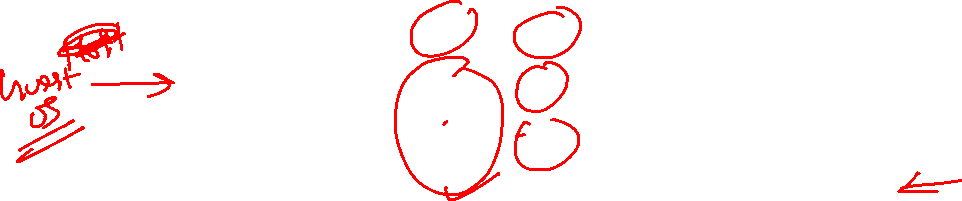 Guest
OS